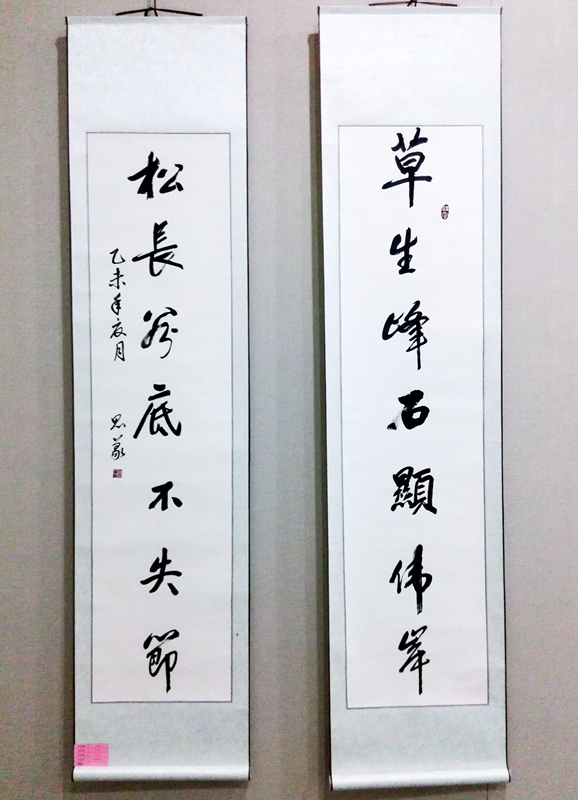 草生峰石顯伟岸
松長谷底不失節
乙未年夏月
思